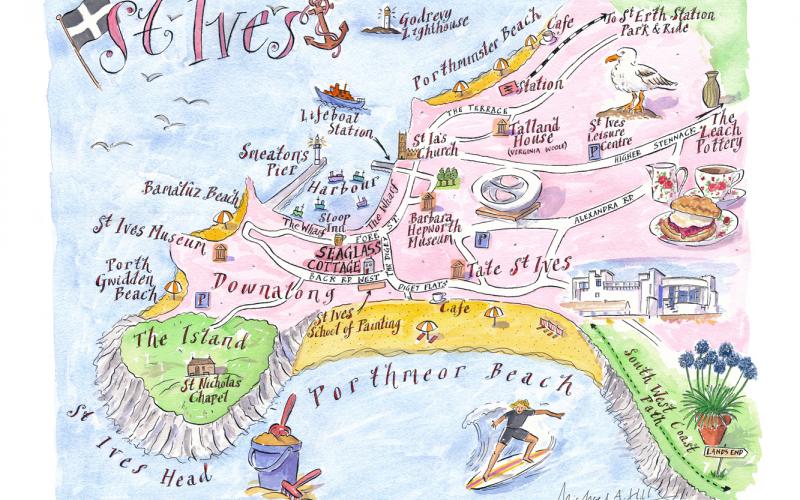 St Ives
Godrevy
Lighthouse
Porthminster Beach
Cafe
To St Erth Station
Park & Ride
Station
THE TERRACE
Lifeboat
Station
St Ia's
Church
Talland
House
(VIRGINIA WOOLF)
St Ives
Leisure
Centre
P
HIGHER STENNACK
The
Leach
Pottery
Smeaton's
Pier
Harbour
Bamaluz Beach
The Wharf
Sloop
Inn
The Wharf
FORE ST.
Barbara
Hepworth
Museum
ALEXANDRA RD
P
St Ives Museum
SEAGLASS
COTTAGE
THE DIGEY
BACK RD WEST
DIGEY FLATS
Tate St Ives
Porth
Gwidden
Beach
P
Downalong
St Ives
School of Painting
Cafe
The Island
St Nicholas
Chapel
Porthmeor Beach
St Ives Head
South West Coast
Path
LANDS END